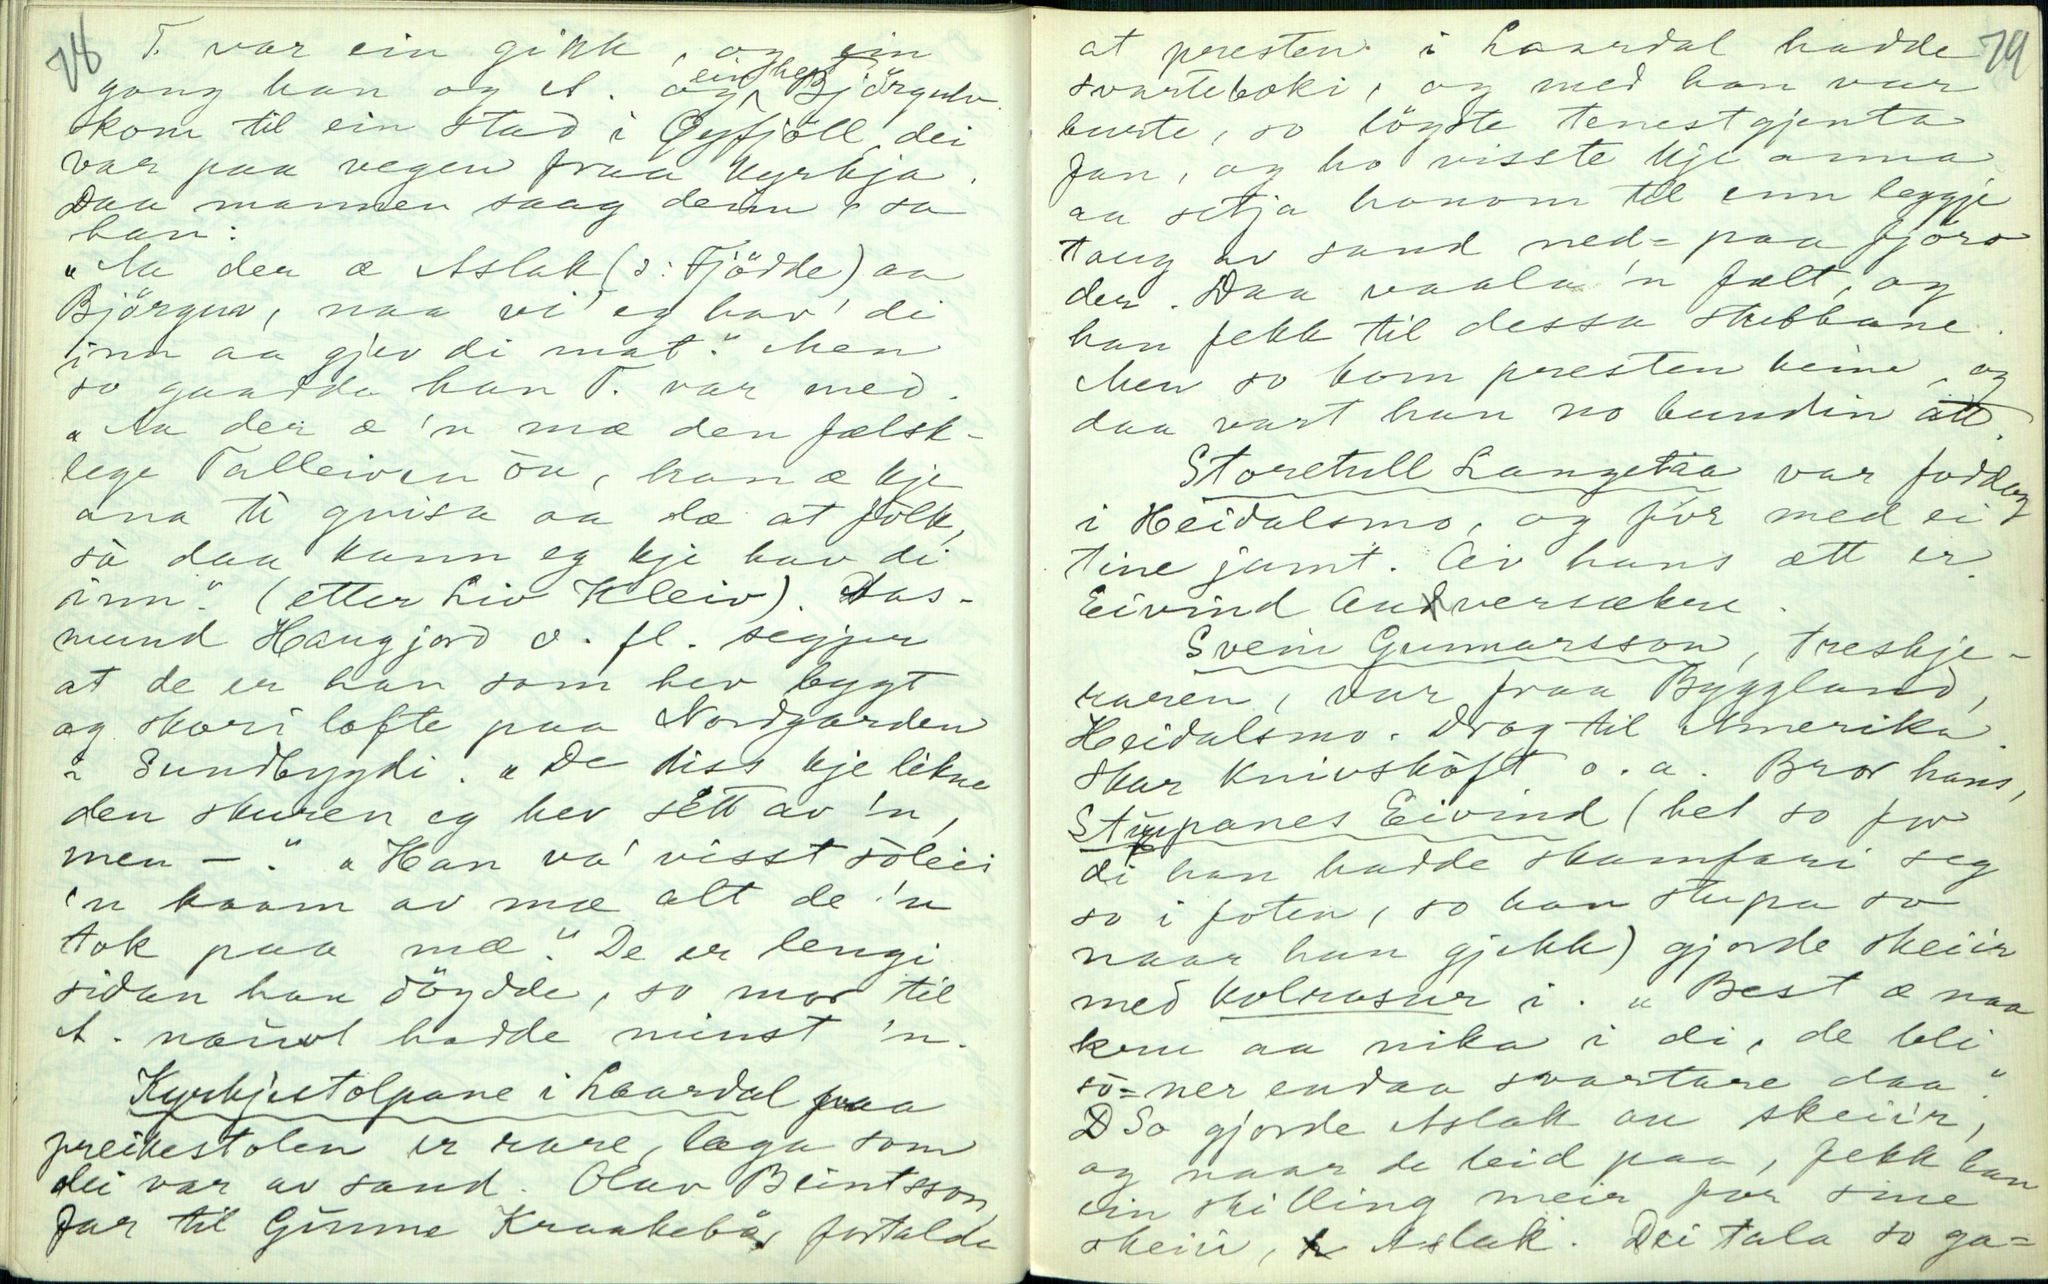 78
T. var ein gikk, og ein
gong han og A. og ein her Björgulv
kom til ein stad i Öyfjöll, dei
var paa vegen fraa kyrkja.
Daa mannen saag deim, sa
han:
"Aa der æ Aslak (ɔ: Fjödde) aa
Björguv, naa vi' eg hav' di
inn aa gjev di mat." Men
so gaadde han T. var med.
"Aa der æ 'n mæ den fælsk-
lege Talleiven òu, han æ kje
ana ti gvisa aa læ at fólk,
sò daa kann eg kje hav di
inn." (etter Liv Kleiv). Aas-
mund Haugjord o. fl. segjer
at de er han som hev bygt
og skori lofte paa Nordgarden
i Sundbygdi. "De liss kje likne
den skuren eg hev sétt av 'n,
men —." "Han va' visst sóleis
'n kaam av mæ alt de 'n
tok paa mæ." De er lengi
sidan han döydde, so mor til
A. næuvt hadde minst 'n.
Kyrkjestolpane i Laardal paa
preikestolen er rare, laga som
dei var av sand. Olav Beintsson,
far til Gunne Kraakebö, fortalde
79
at presten i Laardal hadde
svarteboki, og med han var
burte, so löyste tenestgjenta
fan, og ho visste kje anna
aa setja honom til enn leggje
taug av sand ned- paa fjöro
der. Daa vaala 'n fælt, og
han fekk til dessa stubbane.
Men so kom presten heim, og
daa vart han no bundin att.
Storetull Langetaa var fødd og
i Heidalsmo, og fór med ei
tine jamt. Av hans ætt er
Eivind Andversækre.
Svein Gunnarsson, treskje-
raren, var fraa Byggland,
Heidalsmo. Drog til Amerika.
Skar knivsköft o. a. Bror hans,
Stupanes Eivind (het so for
di han hadde skamfari seg
so i foten, so han stupa so
naar han gjekk) gjorde skeiir
med kolrosur i. "Best æ naa
kem aa nika i di, de bli
sò-ner endaa svartare daa."
So gjorde Aslak au skeiir,
og naar de leid paa, fekk han
ein skilling meir for sine
skeiir, Aslak. Dei tala so ga-